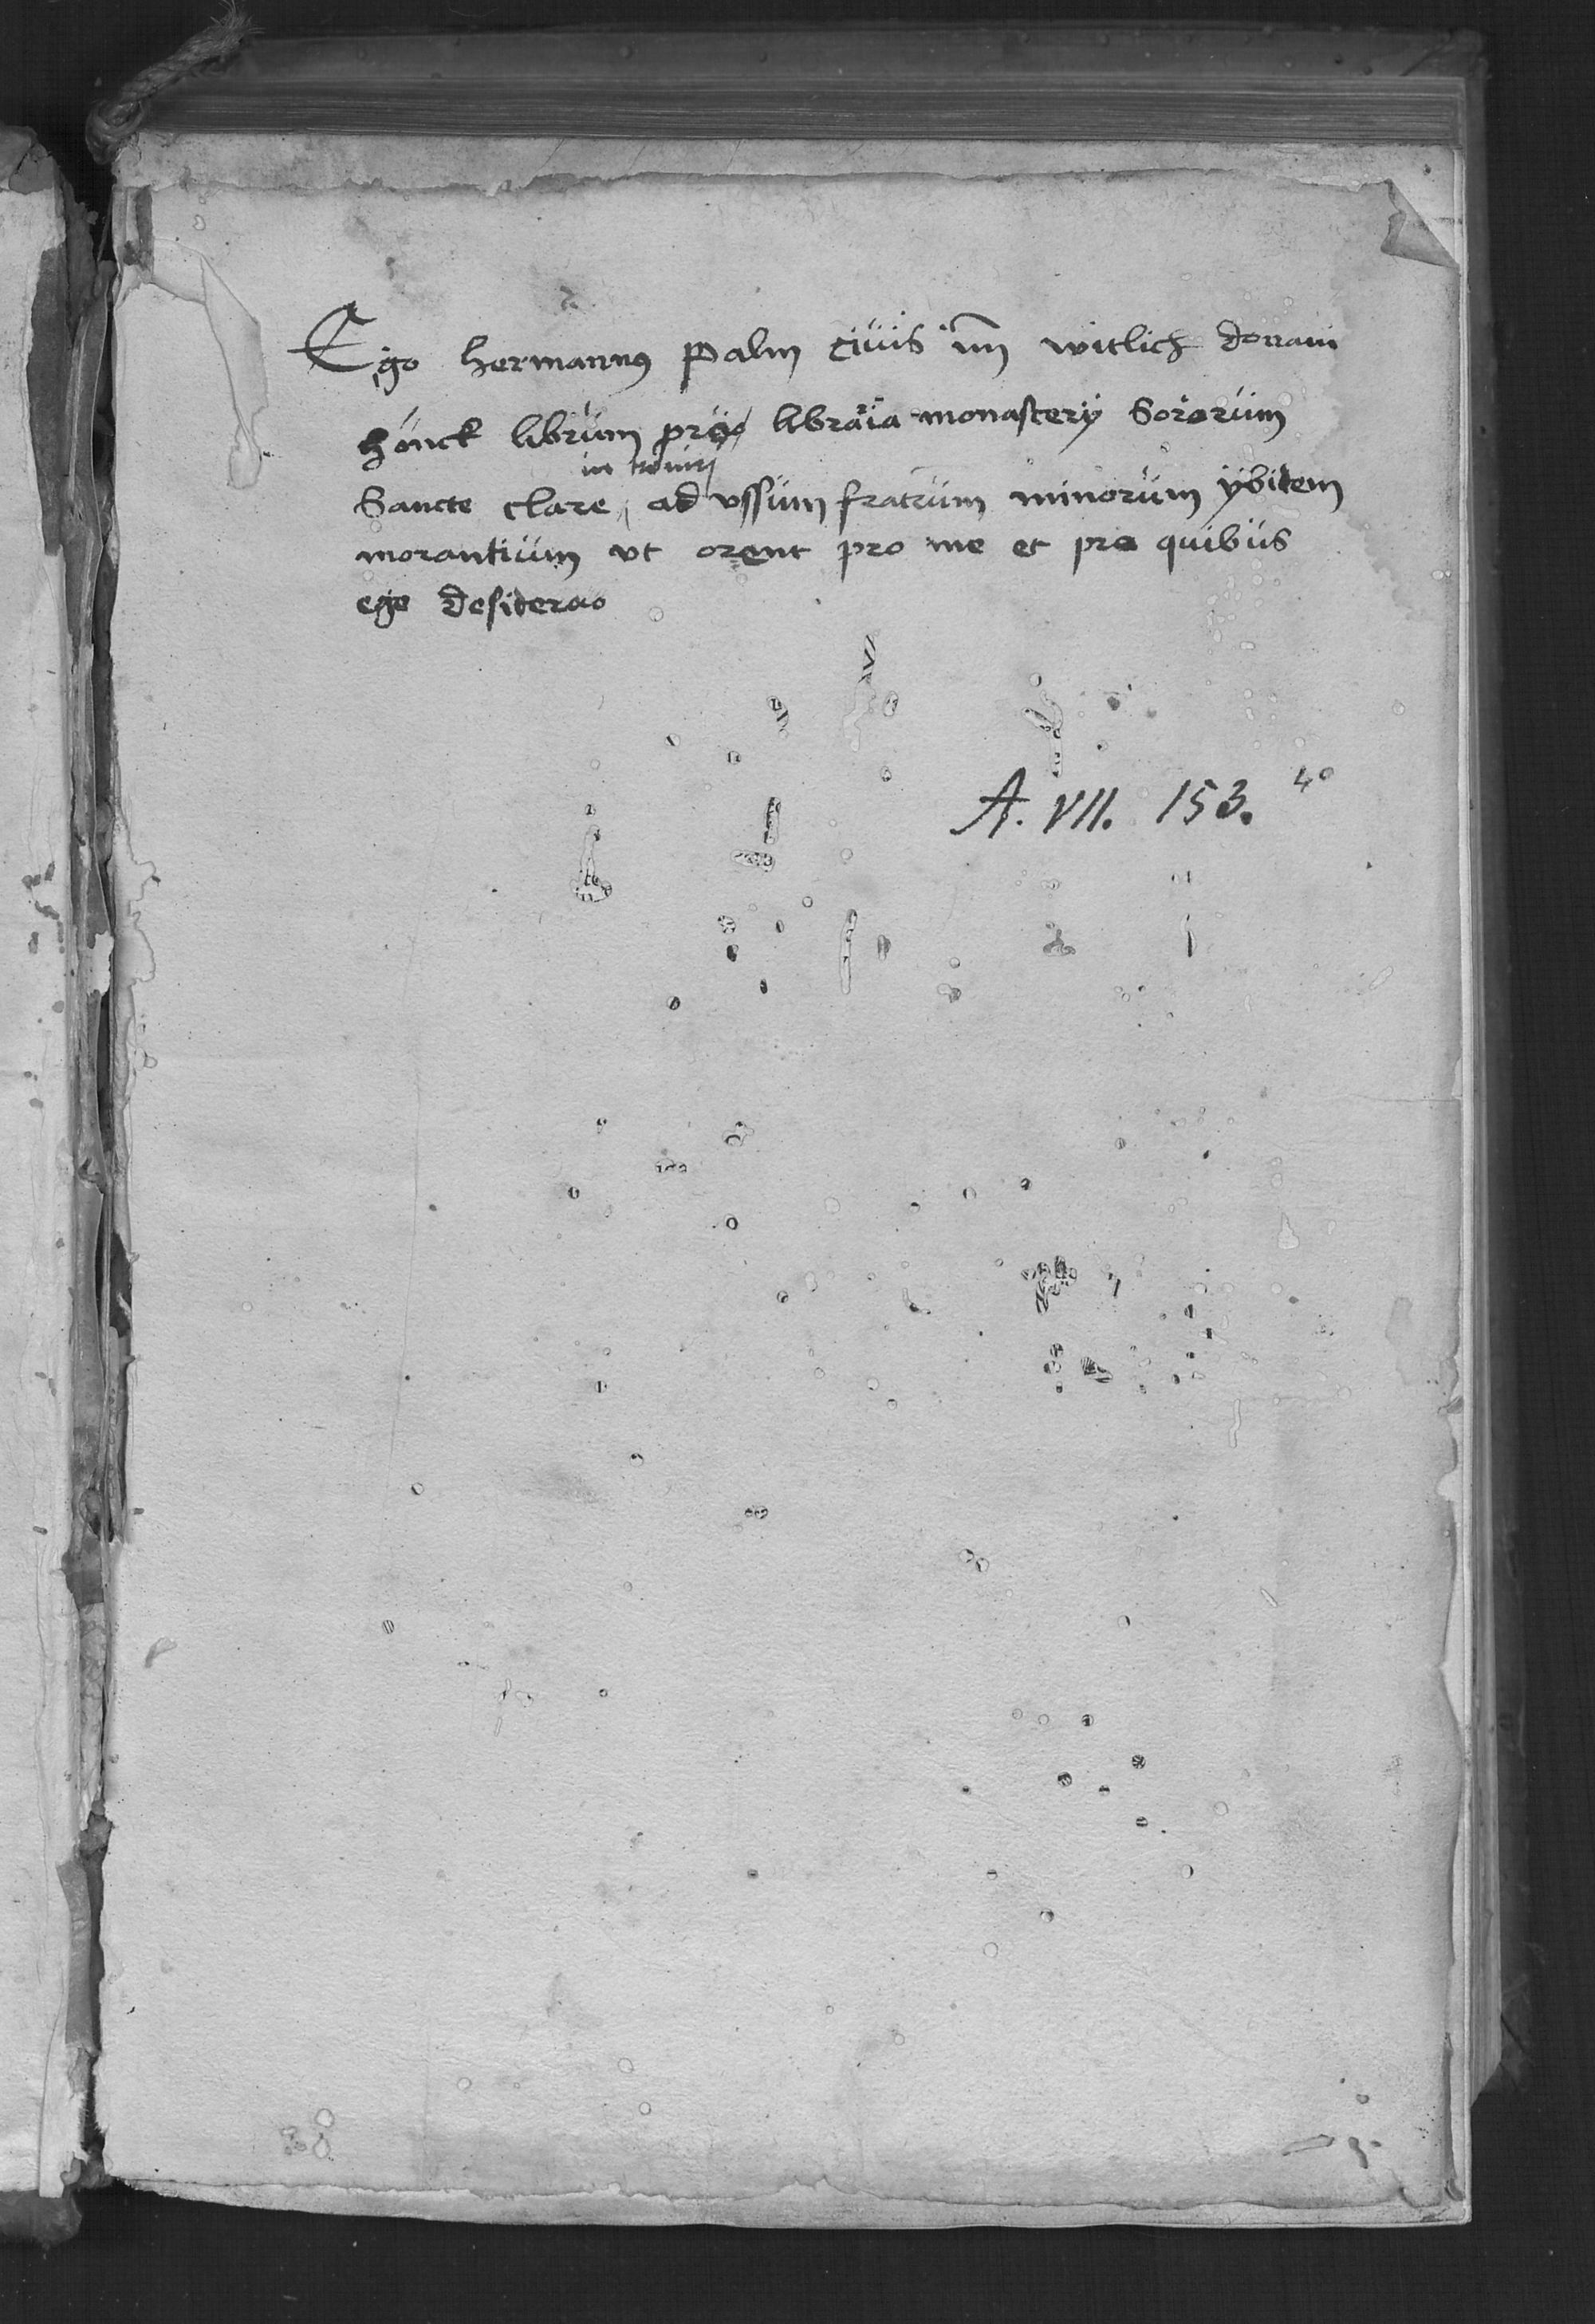 Ego hermannus palm ciuis im witlich donaui
hunck librum pro libraria monastery Sororum
in treuiri
Sancte clare, ad vssum fratrum minorum ybidem
morantium vt orent pro me et pro quibus
ego desidero
A. VII. 153. 4°